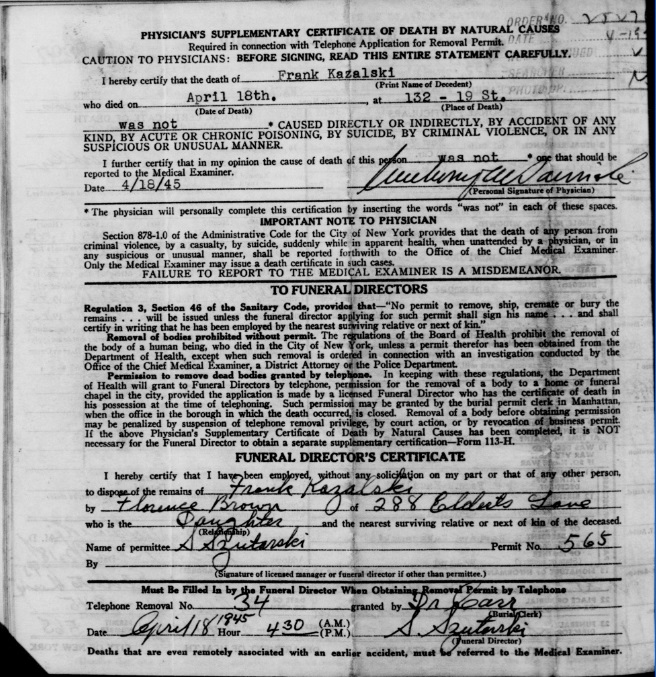 ORDER NO.
DATE
PHYSICIAN'S SUPPLEMENTARY CERTIFICATE OF DEATH BY NATURAL CAUSES
Required in connection with Telephone Application for Removal Permit.
CAUTION TO PHYSICIANS: BEFORE SIGNING, READ THIS ENTIRE STATEMENT CAREFULLY.
I hereby certify that the death of Frank Kazalski
(Print Name of Decedent)
who died on April 18th. , at 132 - 19 St.
(Date of Death) (Place of Death)
was not * CAUSED DIRECTLY OR INDIRECTLY, BY ACCIDENT OF ANY
KIND, BY ACUTE OR CHRONIC POISONING, BY SUICIDE, BY CRIMINAL VIOLENCE, OR IN ANY
SUSPICIOUS OR UNUSUAL MANNER.
I further certify that in my opinion the cause of death of this person was not * one that should be
reported to the Medical Examiner.
Date 4/18/45
(Personal Signature of Physician)
* The physician will personally complete this certification by inserting the words "was not" in each of these spaces.
IMPORTANT NOTE TO PHYSICIAN
Section 878-1.0 of the Administrative Code for the City of New York provides that the death of any person from
criminal violence, by a casualty, by suicide, suddenly while in apparent health, when unattended by a physician, or in
any suspicious or unusual manner, shall be reported forthwith to the Office of the Chief Medical Examiner.
Only the Medical Examiner may issue a death certificate in such cases.
FAILURE TO REPORT TO THE MEDICAL EXAMINER IS A MISDEMEANOR.
TO FUNERAL DIRECTORS
Regulation 3, Section 46 of the Sanitary Code, provides that—"No permit to remove, ship, cremate or bury the
remains . . . will be issued unless the funeral director applying for such permit shall sign his name . . . and shall
certify in writing that he has been employed by the nearest surviving relative or next of kin."
Removal of bodies prohibited without permit. The regulations of the Board of Health prohibit the removal of
the body of a human being, who died in the City of New York, unless a permit therefor has been obtained from the
Department of Health, except when such removal is ordered in connection with an investigation conducted by the
Office of the Chief Medical Examiner, a District Attorney or the Police Department.
Permission to remove dead bodies granted by telephone. In keeping with these regulations, the Department
of Health will grant to Funeral Directors by telephone, permission for the removal of a body to a home or funeral
chapel in the city, provided the application is made by a licensed Funeral Director who has the certificate of death in
his possession at the time of telephoning. Such permission may be granted by the burial permit clerk in Manhattan,
when the office in the borough in which the death occurred, is closed. Removal of a body before obtaining permission
may be penalized by suspension of telephone removal privilege, by court action, or by revocation of business permit.
If the above Physician's Supplementary Certificate of Death by Natural Causes has been completed, it is NOT
necessary for the Funeral Director to obtain a separate supplementary certification—Form 113-H.
FUNERAL DIRECTOR'S CERTIFICATE
I hereby certify that I have been employed, without any solicitation on my part or that of any other person,
to dispose of the remains of Frank Kazalski
by Florence Brown of 288 Elderts Lane
who is the Daughter and the nearest surviving relative or next of kin of the deceased.
(Relationship)
Name of permittee S Szutarski Permit No. 565
By
(Signature of licensed manager or funeral director if other than permittee.)
Must Be Filled In by the Funeral Director When Obtaining Removal Permit by Telephone
Telephone Removal No. 34 granted by Dr Carr
(Burial Clerk)
Date April 18 1945 Hour 430 (A.M.) (P.M.) S. Szutarski
(Funeral Director)
Deaths that are even remotely associated with an earlier accident, must be referred to the Medical Examiner.